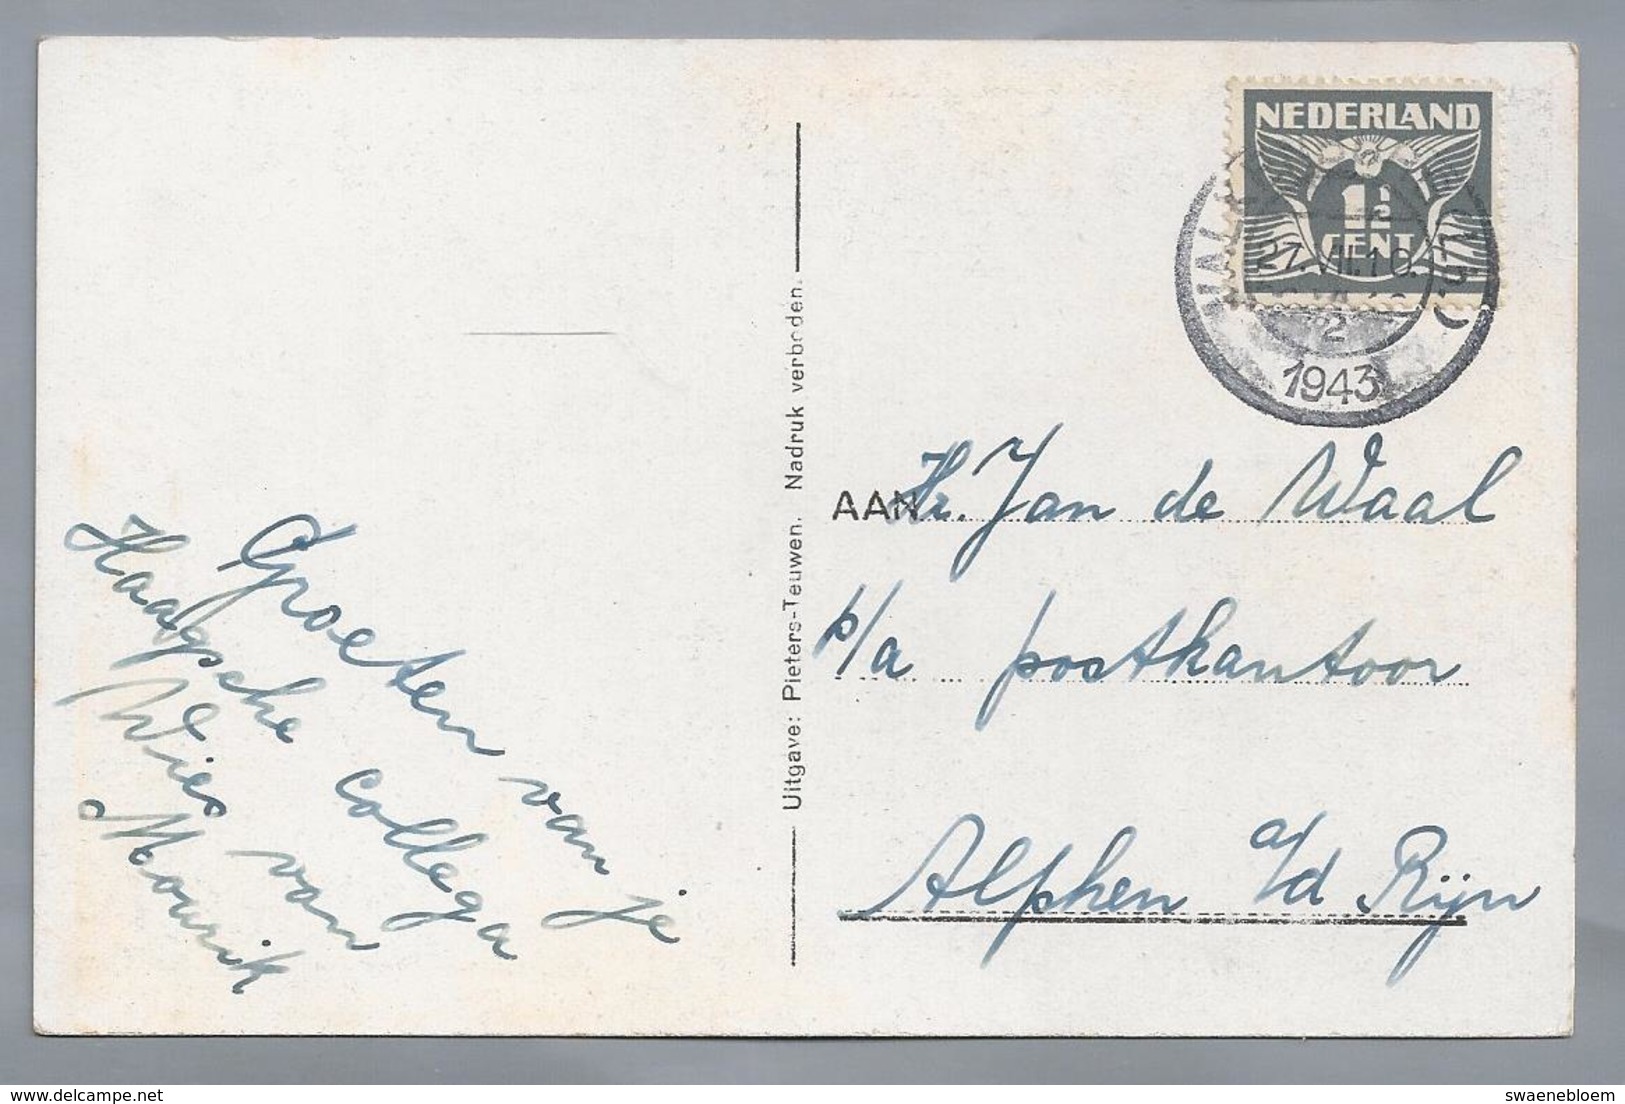 NEDERLAND
1½
CENT
27.VII.10.
2
1943
Uitgave: Pieters-Teuwen. Nadruk verboden.
AAN Hr. Jan de Waal
p/a postkantoor
Alphen a/d Rijn
Groeten van je
Haagsche collega
Wies van
Mourik
delcampe.net
swaenebloem